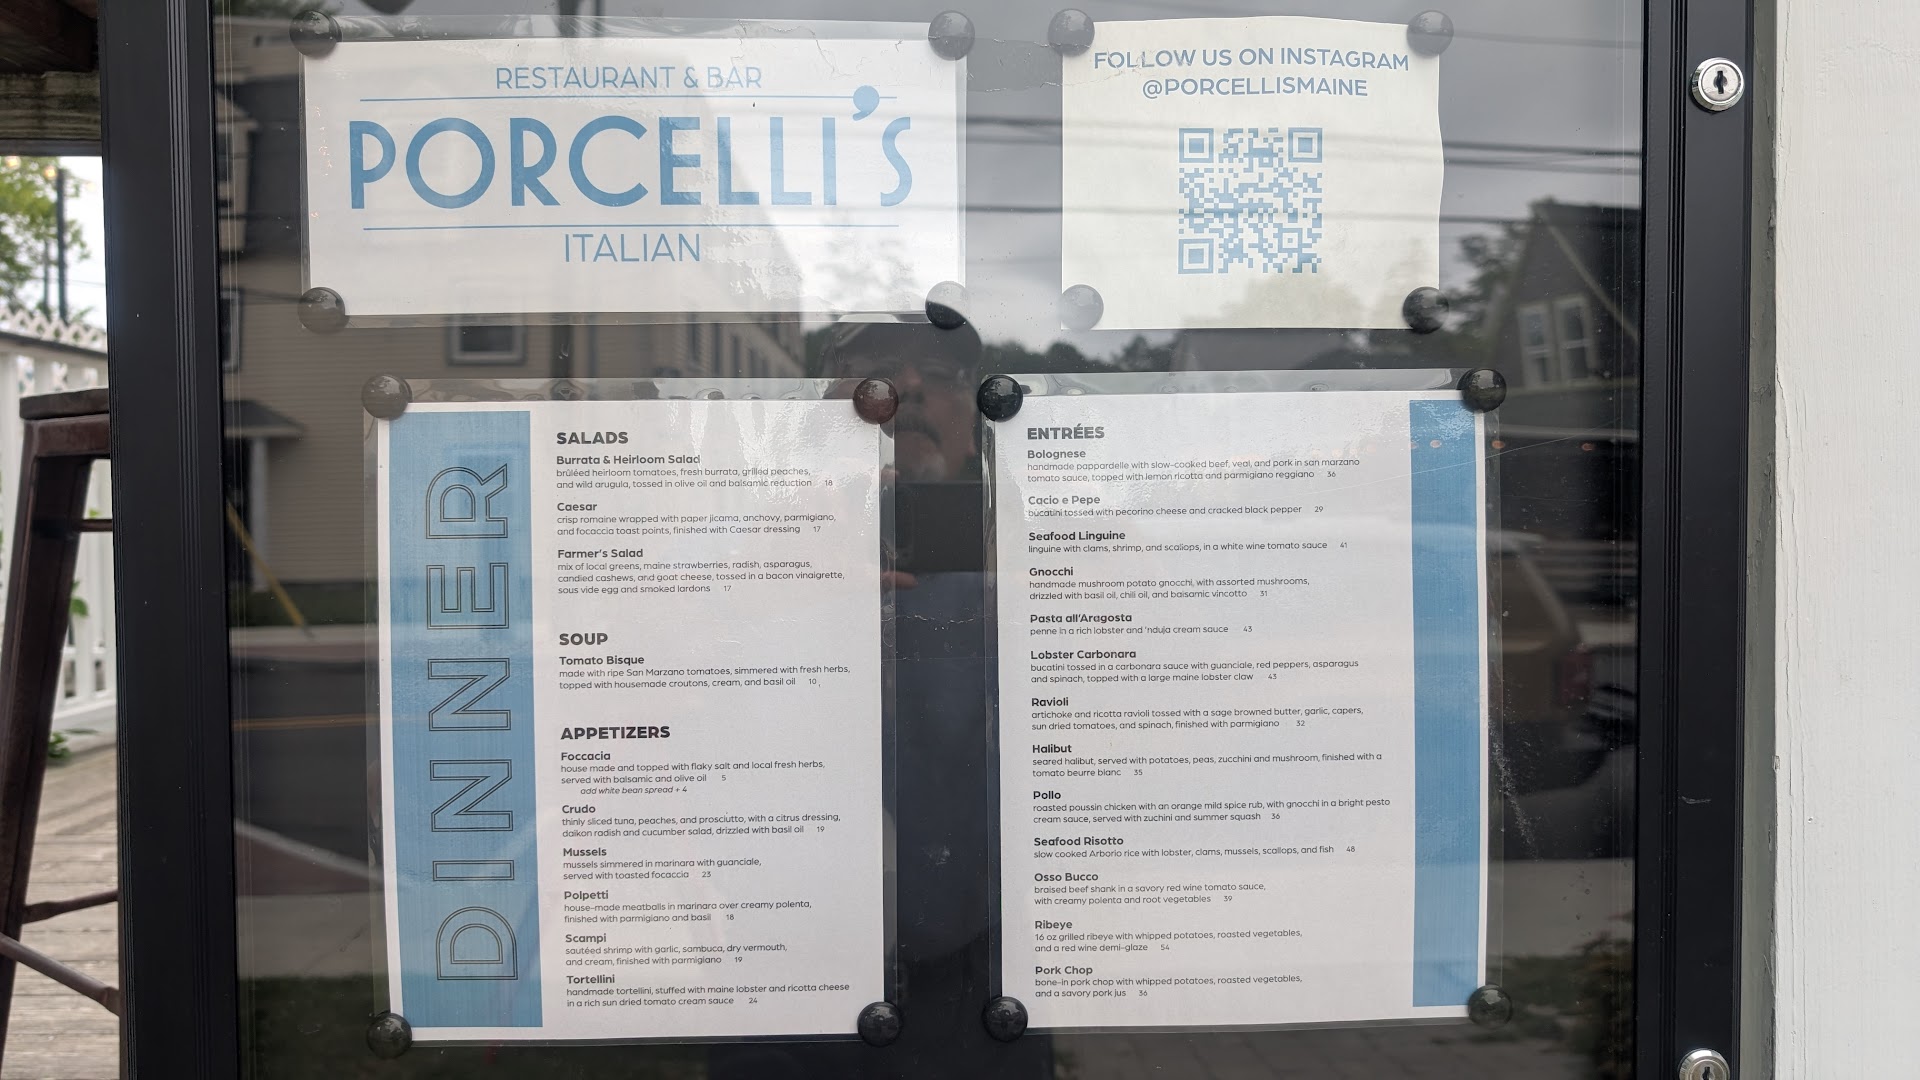 RESTAURANT & BAR
PORCELLI'S
ITALIAN
FOLLOW US ON INSTAGRAM
@PORCELLISMAINE
DINNER
SALADS
Burrata & Heirloom Salad
brûléed heirloom tomatoes, fresh burrata, grilled peaches,
and wild arugula, tossed in olive oil and balsamic reduction 18
Caesar
crisp romaine wrapped with paper jicama, anchovy, parmigiano,
and focaccia toast points, finished with Caesar dressing 17
Farmer's Salad
mix of local greens, maine strawberries, radish, asparagus,
candied cashews, and goat cheese, tossed in a bacon vinaigrette,
sous vide egg and smoked lardons 17
SOUP
Tomato Bisque
made with ripe San Marzano tomatoes, simmered with fresh herbs,
topped with housemade croutons, cream, and basil oil 10
APPETIZERS
Foccacia
house made and topped with flaky salt and local fresh herbs,
served with balsamic and olive oil 5
add white bean spread + 4
Crudo
thinly sliced tuna, peaches, and prosciutto, with a citrus dressing,
daikon radish and cucumber salad, drizzled with basil oil 19
Mussels
mussels simmered in marinara with guanciale,
served with toasted focaccia 23
Polpetti
house-made meatballs in marinara over creamy polenta,
finished with parmigiano and basil 18
Scampi
sautéed shrimp with garlic, sambuca, dry vermouth,
and cream, finished with parmigiano 19
Tortellini
handmade tortellini, stuffed with maine lobster and ricotta cheese
in a rich sun dried tomato cream sauce 24
ENTRÉES
Bolognese
handmade pappardelle with slow-cooked beef, veal, and pork in san marzano
tomato sauce, topped with lemon ricotta and parmigiano reggiano 36
Cacio e Pepe
bucatini tossed with pecorino cheese and cracked black pepper 29
Seafood Linguine
linguine with clams, shrimp, and scallops, in a white wine tomato sauce 41
Gnocchi
handmade mushroom potato gnocchi, with assorted mushrooms,
drizzled with basil oil, chili oil, and balsamic vincotto 31
Pasta all'Aragosta
penne in a rich lobster and 'nduja cream sauce 43
Lobster Carbonara
bucatini tossed in a carbonara sauce with guanciale, red peppers, asparagus
and spinach, topped with a large maine lobster claw 43
Ravioli
artichoke and ricotta ravioli tossed with a sage browned butter, garlic, capers,
sun dried tomatoes, and spinach, finished with parmigiano 32
Halibut
seared halibut, served with potatoes, peas, zucchini and mushroom, finished with a
tomato beurre blanc 35
Pollo
roasted poussin chicken with an orange mild spice rub, with gnocchi in a bright pesto
cream sauce, served with zuchini and summer squash 36
Seafood Risotto
slow cooked Arborio rice with lobster, clams, mussels, scallops, and fish 48
Osso Bucco
braised beef shank in a savory red wine tomato sauce,
with creamy polenta and root vegetables 39
Ribeye
16 oz grilled ribeye with whipped potatoes, roasted vegetables,
and a red wine demi-glaze 54
Pork Chop
bone-in pork chop with whipped potatoes, roasted vegetables,
and a savory pork jus 36